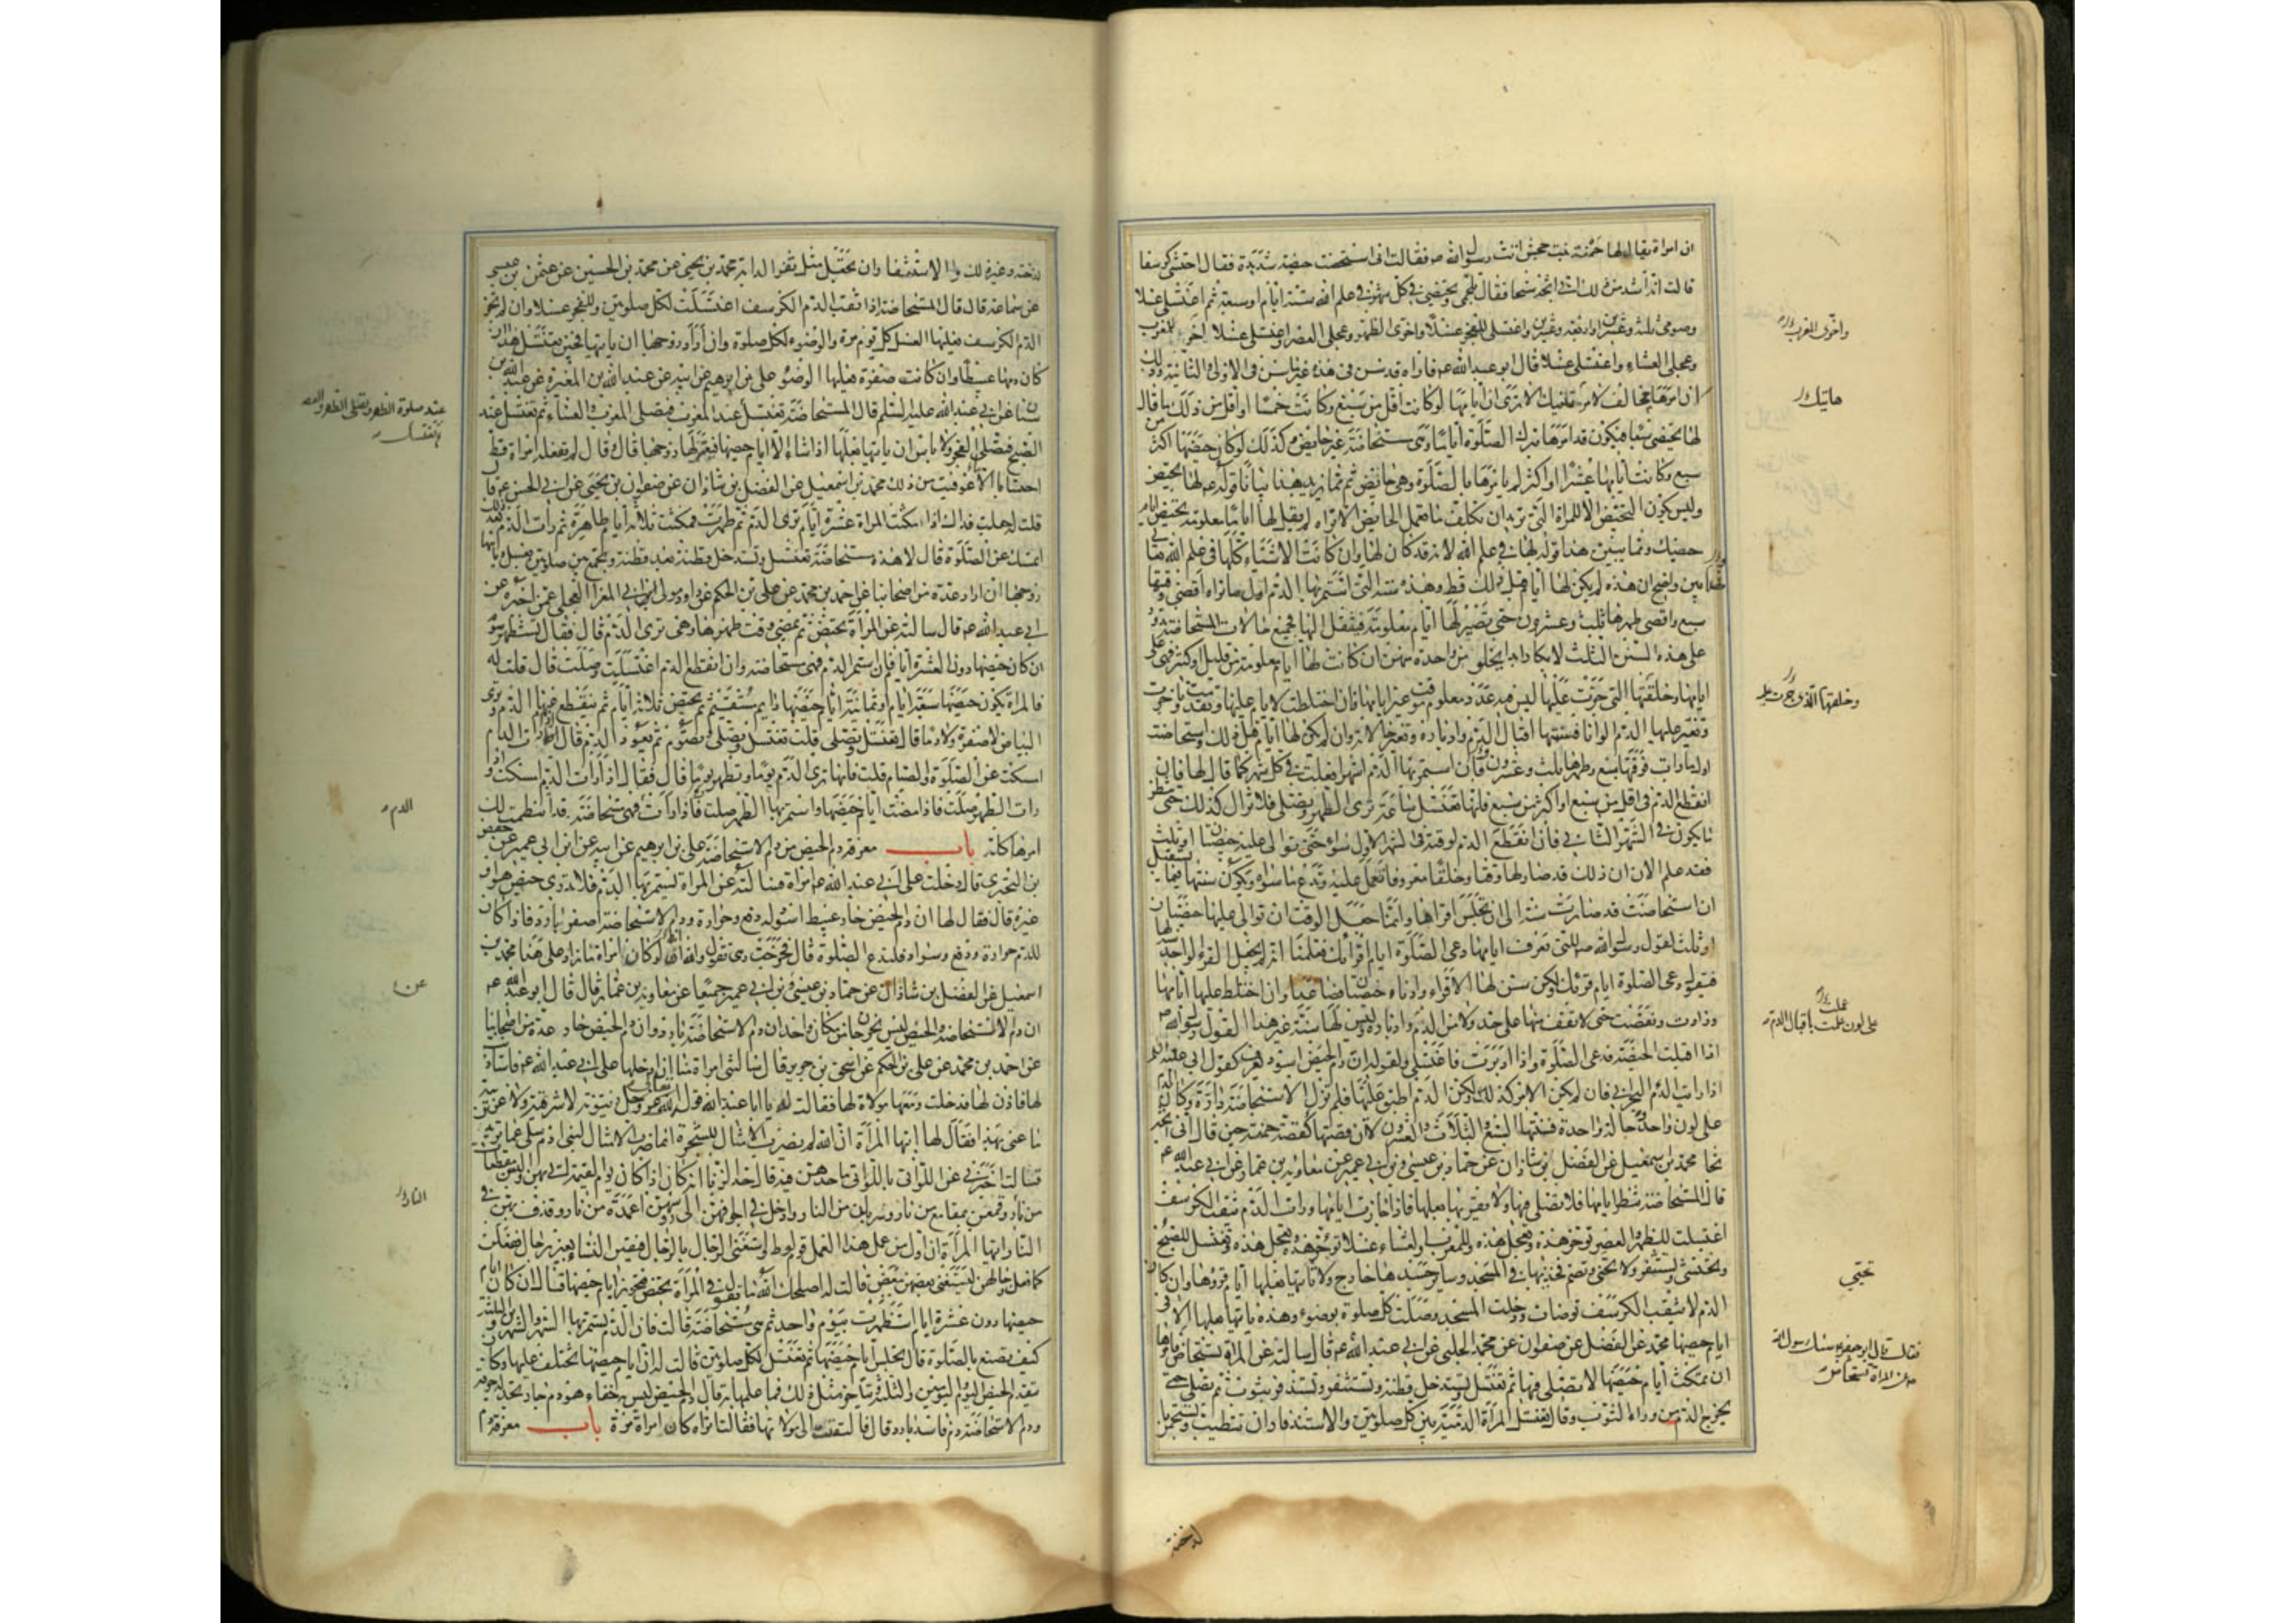 ان امراة يقال لها حمنة بنت جحش اتت رسول الله ص فقالت انى استحضت حيضة شديدة فقال احتشى كرسفا
قالت انه اشد من ذلك انى اثجه ثجا فقال تلجمى وتحيضى فى كل شهر فى علم الله ستة ايام او سبعة ثم اغتسلى غسلا
وصومى ثلثة وعشرين او اربعة وعشرين واغتسلى للفجر غسلا واخرى الظهر وعجلى العصر واغتسلى غسلا اخرى المغرب
وعجلى العشاء واغتسلى غسلا قال ابو عبد الله ع فاراه قد سن فى هذه غير ما سن فى الاولى والثانية وذلك
ان امرها مخالف لامر هاتيك الا ترى ان ايامها لو كانت اقل من سبع وكانت خمسا او اقل من ذلك ما قال
لها تحيضى سبعا فيكون قد امرها بترك الصلوة اياما وهى مستحاضة غير حايض وكذلك لو كان حيضها اكثر من
سبع وكانت ايامها عشرا او اكثر لم يامرها بالصلوة وهى حايض ثم مما يزيد هذا بيانا قوله ع لها تحيضى
وليس يكون التحيض الا للمراة التى تريد ان تكلف ما تعمل الحايض الا تراه لم يقل لها اياما معلومة تحيضى ايام
حيضك ومما يبين هذا قوله لها فى علم الله لانه قد كان لها وان كانت الاشياء كلها فى علم الله تعالى
فهذا بين واضح ان هذه لم يكن لها ايام قبل ذلك قط وهذه سنة التى استمر بها الدم اول ما تراه اقصى وقتها
سبع واقصى طهرها ثلث وعشرون حتى تصير لها ايام معلومة فتنتقل اليها فجميع حالات المستحاضة تدور
على هذه السنن الثلث لا يكاد ابدا يخلو من واحدة منهن ان كانت لها ايام معلومة من قليل او كثير فهى على
ايامها وخلقتها التى جرت عليها ليس فيه عدد معلوم موقت غير ايامها فان اختلطت الايام عليها وتقدمت وتاخرت
وتغير عليها الدم الوانا فسنتها اقبال الدم وادباره وتغير حالاته وان لم تكن لها ايام قبل ذلك واستحاضت
اول ما رات فوقتها سبع وطهرها ثلث وعشرون فان استمر بها الدم اشهرا فعلت فى كل شهر كما قال لها فان
انقطع الدم فى اقل من سبع او اكثر من سبع فانها تغتسل ساعة ترى الطهر وتصلى فلا تزال كذلك حتى تنظر
ما يكون فى الشهر الثانى فان انقطع الدم لوقته فى الشهر الاول سواء حتى توالى عليه حيضتان او ثلث
فقد علم الان ان ذلك قد صار لها وقتا وخلقا معروفا تعمل عليه وتدع ما سواه وتكون سنتها فيما يستقبل
ان استحاضت قد صارت سنة الى ان تجلس اقراها وانما جعل الوقت ان توالى عليها حيضتان
او ثلث لقول رسول الله ص للتى تعرف ايامها دعى الصلوة ايام اقرائك فعلمنا انه لم يجعل القرء الواحد سنة لها
فيقول دعى الصلوة ايام قرئك ولكن سن لها الاقراء وادناه حيضتان فصاعدا وان اختلط عليها ايامها
وزادت ونقصت حتى لا تقف منها على حد ولا من الدم وادباره وليس لها سنة غير هذا لقول رسول الله ص
اذا اقبلت الحيضة فدعى الصلوة واذا ادبرت فاغتسلى ولقوله ان دم الحيض اسود يعرف كقول ابى عليه السلم
اذا رايت الدم البحرانى فان لم يكن الامر كذلك ولكن الدم اطبق عليها فلم تزل الاستحاضة دارة وكان الدم
على لون واحد وحالة واحدة فسنتها السبع والثلاث والعشرون لان قصتها كقصة حمنة حين قال انى اثجه
ثجا محمد بن اسمعيل عن الفضل بن شاذان عن حماد بن عيسى وابن ابى عمير عن معاوية بن عمار عن ابى عبد الله ع
قال المستحاضة تنظر ايامها فلا تصلى فيها ولا يقربها بعلها فاذا جازت ايامها ورات الدم يثقب الكرسف
اغتسلت للظهر والعصر تؤخر هذه وتعجل هذه وللمغرب والعشاء غسلا تؤخر هذه وتعجل هذه وتغتسل للصبح
وتحتشى وتستثفر ولا تحنى وتضم فخذيها فى المسجد وساير جسدها خارج ولا ياتيها بعلها ايام قروها وان كان
الدم لا يثقب الكرسف توضات ودخلت المسجد وصلت كل صلوة بوضوء وهذه ياتيها بعلها الا فى
ايام حيضها محمد عن الفضل عن صفوان عن محمد الحلبى عن ابى عبد الله ع قال سالته عن المراة تستحاض فامرها
ان تمكث ايام حيضها لا تصلى فيها ثم تغتسل وتستدخل قطنة وتستثفر وتستذفر بثوب ثم تصلى حتى
يخرج الدم من وراء الثوب وقال تغتسل المراة الدمية بين كل صلوتين والاستذفار ان تتطيب وتستجمر با
واخرى المغرب
هاتيك
وخلقتها الذى جرت عليه
عملت
على لون عملت باقبال الدم
تحيى
فقال قال ابو جعفر ع سئل رسول الله
ص عن المراة تستحاض
لدخنة
لدخنة وغير ذلك والاستثفار ان تجعل مثل ثفر الدابة محمد بن يحيى عن محمد بن الحسين عن عثمن بن عيسى
عن سماعة قال قال المستحاضة اذا ثقب الدم الكرسف اغتسلت لكل صلوتين وللفجر غسلا وان لم يجز
الدم الكرسف فعليها الغسل كل يوم مرة والوضوء لكل صلوة وان اراد زوجها ان ياتيها فحين تغتسل هذا ان
كان دمها عبيطا وان كانت صفرة فعليها الوضوء على بن ابرهيم عن ابيه عن عبد الله بن المغيرة عن عبد الله بن
سنان عن ابى عبد الله عليه السلم قال المستحاضة تغتسل عند المغرب فتصلى المغرب والعشاء ثم تغتسل عند
الصبح فتصلى الفجر ولا باس ان ياتيها بعلها اذا شاء الا ايام حيضها فيعتزلها زوجها قال وقال لم تفعله امراة قط
احتسابا الا عوفيت من ذلك محمد بن اسمعيل عن الفضل بن شاذان عن صفوان بن يحيى عن ابى الحسن ع قال
قلت له جعلت فداك اذا مكثت المراة عشرة ايام ترى الدم ثم طهرت فمكثت ثلاثة ايام طاهرة ثم رات الدم بعد ذلك
اتمسك عن الصلوة قال لا هذه مستحاضة تغتسل وتستدخل قطنة بعد قطنة وتجمع بين صلوتين بغسل وياتيها
زوجها ان اراد عدة من اصحابنا عن احمد بن محمد عن على بن الحكم عن داود مولى ابى المغرا العجلى عمن اخبره عن
ابى عبد الله ع قال سالته عن المراة تحيض ثم يمضى وقت طهرها وهى ترى الدم قال فقال تستظهر بيوم
ان كان حيضها دون العشرة ايام فان استمر الدم فهى مستحاضة وان انقطع الدم اغتسلت وصلت قال قلت له
فالمراة يكون حيضها سبعة ايام او ثمانية ايام حيضها دايم مستقيم ثم تحيض ثلاثة ايام ثم ينقطع عنها الدم وترى
البياض لا صفرة ولا دما قال تغتسل وتصلى قلت تغتسل وتصلى وتصوم ثم يعود الدم قال اذا رات الدم
امسكت عن الصلوة والصيام قلت فانها ترى الدم يوما وتطهر يوما قال فقال اذا رات الدم امسكت واذا
رات الطهر صلت فاذا مضت ايام حيضها واستمر بها الطهر صلت فاذا رات فهى مستحاضة قد انتظمت لك
امرها كله باب معرفة دم الحيض من دم الاستحاضة على بن ابرهيم عن ابيه عن ابن ابى عمير عن حفص
بن البخترى قال دخلت على ابى عبد الله ع امراة فسالته عن المراة يستمر بها الدم فلا تدرى حيض هو او
غيره قال فقال لها ان دم الحيض حار عبيط اسود له دفع وحرارة ودم الاستحاضة اصفر بارد فاذا كان
للدم حرارة ودفع وسواد فلتدع الصلوة قال فخرجت وهى تقول والله ان لو كان امراة ما زاد على هذا محمد بن
اسمعيل عن الفضل بن شاذان عن حماد بن عيسى وابن ابى عمير جميعا عن معاوية بن عمار قال قال ابو عبد الله ع
ان دم الاستحاضة والحيض ليس يخرجان من مكان واحد ان دم الاستحاضة بارد وان دم الحيض حار عدة من اصحابنا
عن احمد بن محمد عن على بن الحكم عن اسحق بن جرير قال سالتنى امراة منا ان ادخلها على ابى عبد الله ع فاستاذنت
لها فاذن لها فدخلت ومعها مولاة لها فقالت له يا ابا عبد الله قول الله عز وجل زيتونة لا شرقية ولا غربية
ما عنى بهذا فقال لها ايتها المراة ان الله لم يضرب الامثال للشجرة انما ضرب الامثال لبنى ادم سلى عما تريدين
قالت اخبرنى عن اللواتى باللواتى ما حدهن فيه قال حد الزنا انه اذا كان يوم القيمة اتى بهن والبسن مقطعات
من نار وقمعن بمقامع من نار وسربلن من النار وادخل فى اجوافهن الى رؤسهن اعمدة من نار وقذف بهن فى
النار ايتها المراة ان اول من عمل هذا العمل قوم لوط واستغنى الرجال بالرجال فبقين النساء بغير رجال ففعلن
كما فعل رجالهن ليستغنى بعضهن ببعض قالت له اصلحك الله ما تقول فى المراة تحيض فتجوز ايام حيضها قال ان كان ايام
حيضها دون عشرة ايام استظهرت بيوم واحد ثم هى مستحاضة قالت فان الدم يستمر بها الشهر والشهرين والثلثة
كيف تصنع بالصلوة قال تجلس ايام حيضها ثم تغتسل لكل صلوتين قالت له ان ايام حيضها تختلف عليها وكان
يتقدم الحيض اليوم واليومين والثلثة ويتاخر مثل ذلك فما علمها به قال دم الحيض ليس به خفاء هو دم حار تجد له حرقة
ودم الاستحاضة دم فاسد بارد قال فالتفتت الى مولاتها فقالت اتراه كان امراة مرة باب معرفة دم
عند صلوة الظهر وتصلى الظهر والعصر
ثم تغتسل
الدم
عن
النار